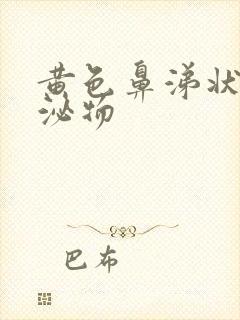 黄色鼻涕状
泌物
巴布